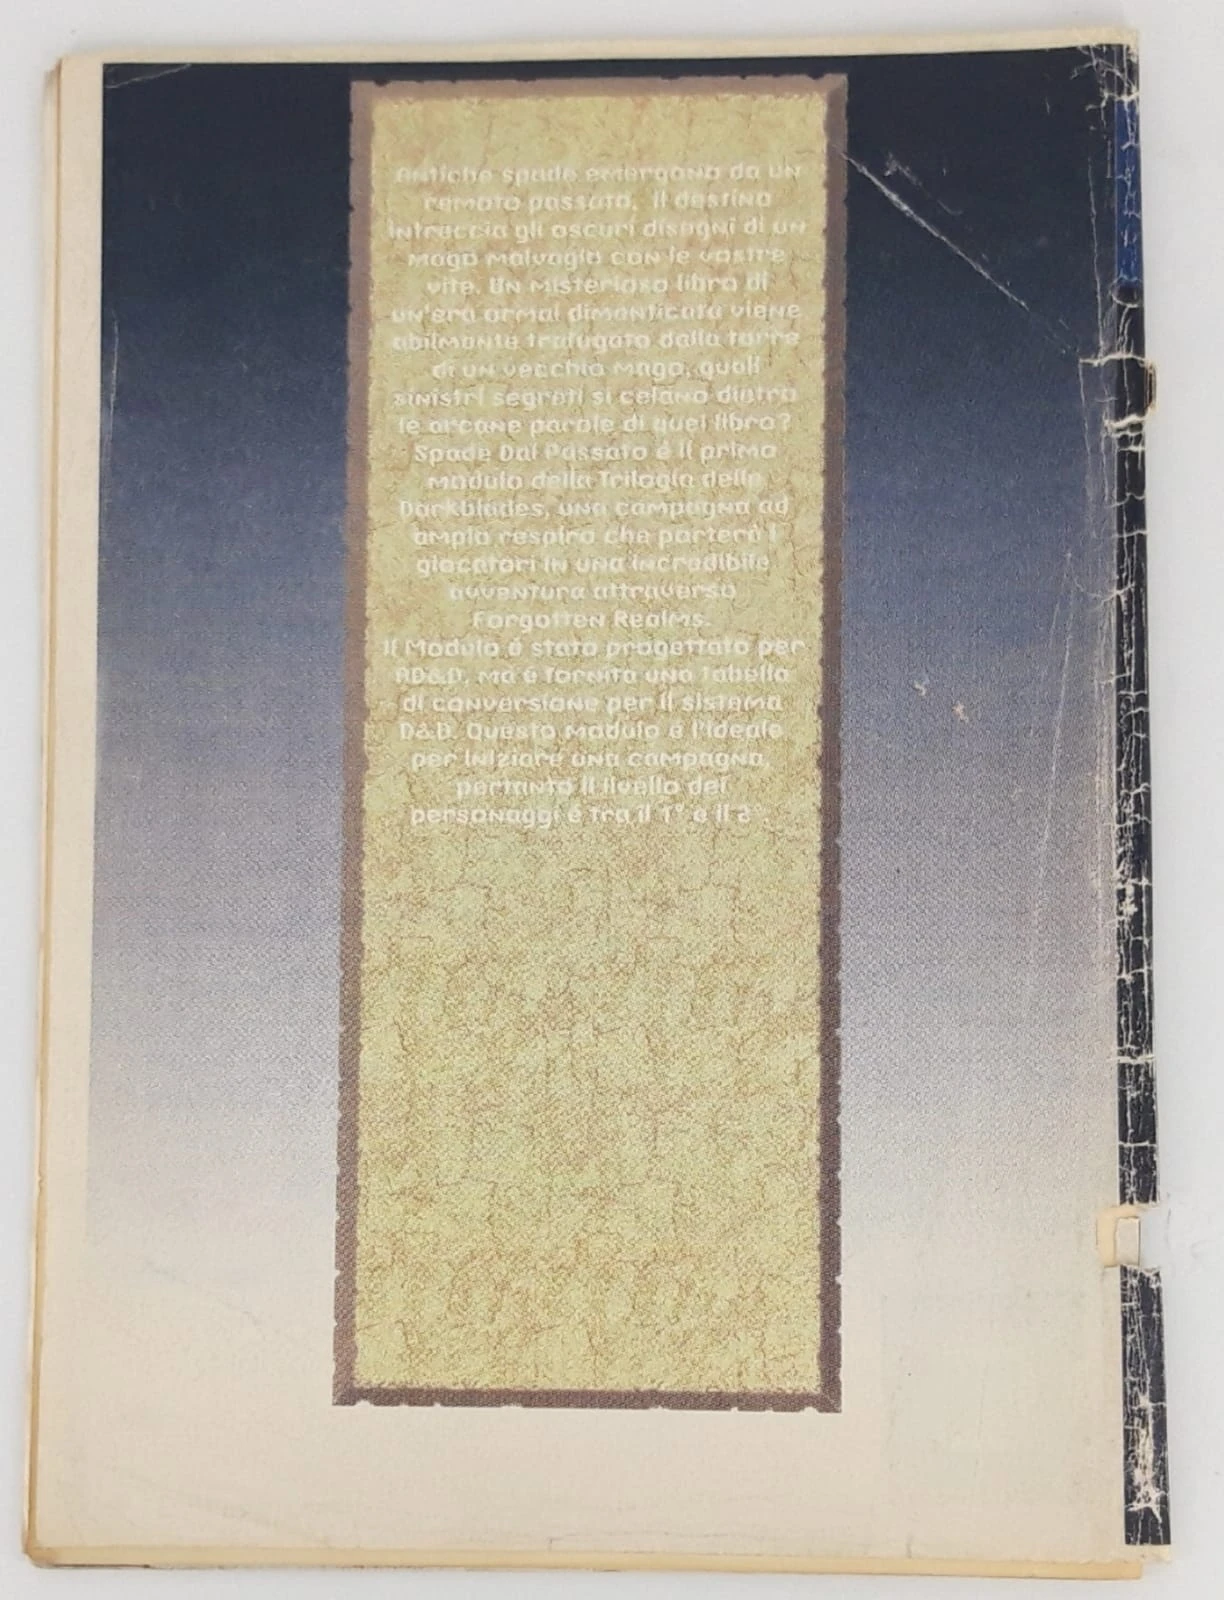 Antiche spade emergono da un
remoto passato, il destino
intreccia gli oscuri disegni di un
mago malvagio con le vostre
vite. Un misterioso libro di
un'era ormai dimenticata viene
abilmente trafugato dalla torre
di un vecchio mago, quali
sinistri segreti si celano dietro
le arcane parole di quel libro?
Spade Dal Passato è il primo
modulo della Trilogia delle
Darkblades, una campagna ad
ampio respiro che porterà i
giocatori in una incredibile
avventura attraverso
Forgotten Realms.
Il Modulo è stato progettato per
AD&D, ma è fornita una tabella
di conversione per il sistema
D&D. Questo modulo è l'ideale
per iniziare una campagna,
pertanto il livello dei
personaggi è tra il 1° e il 2°